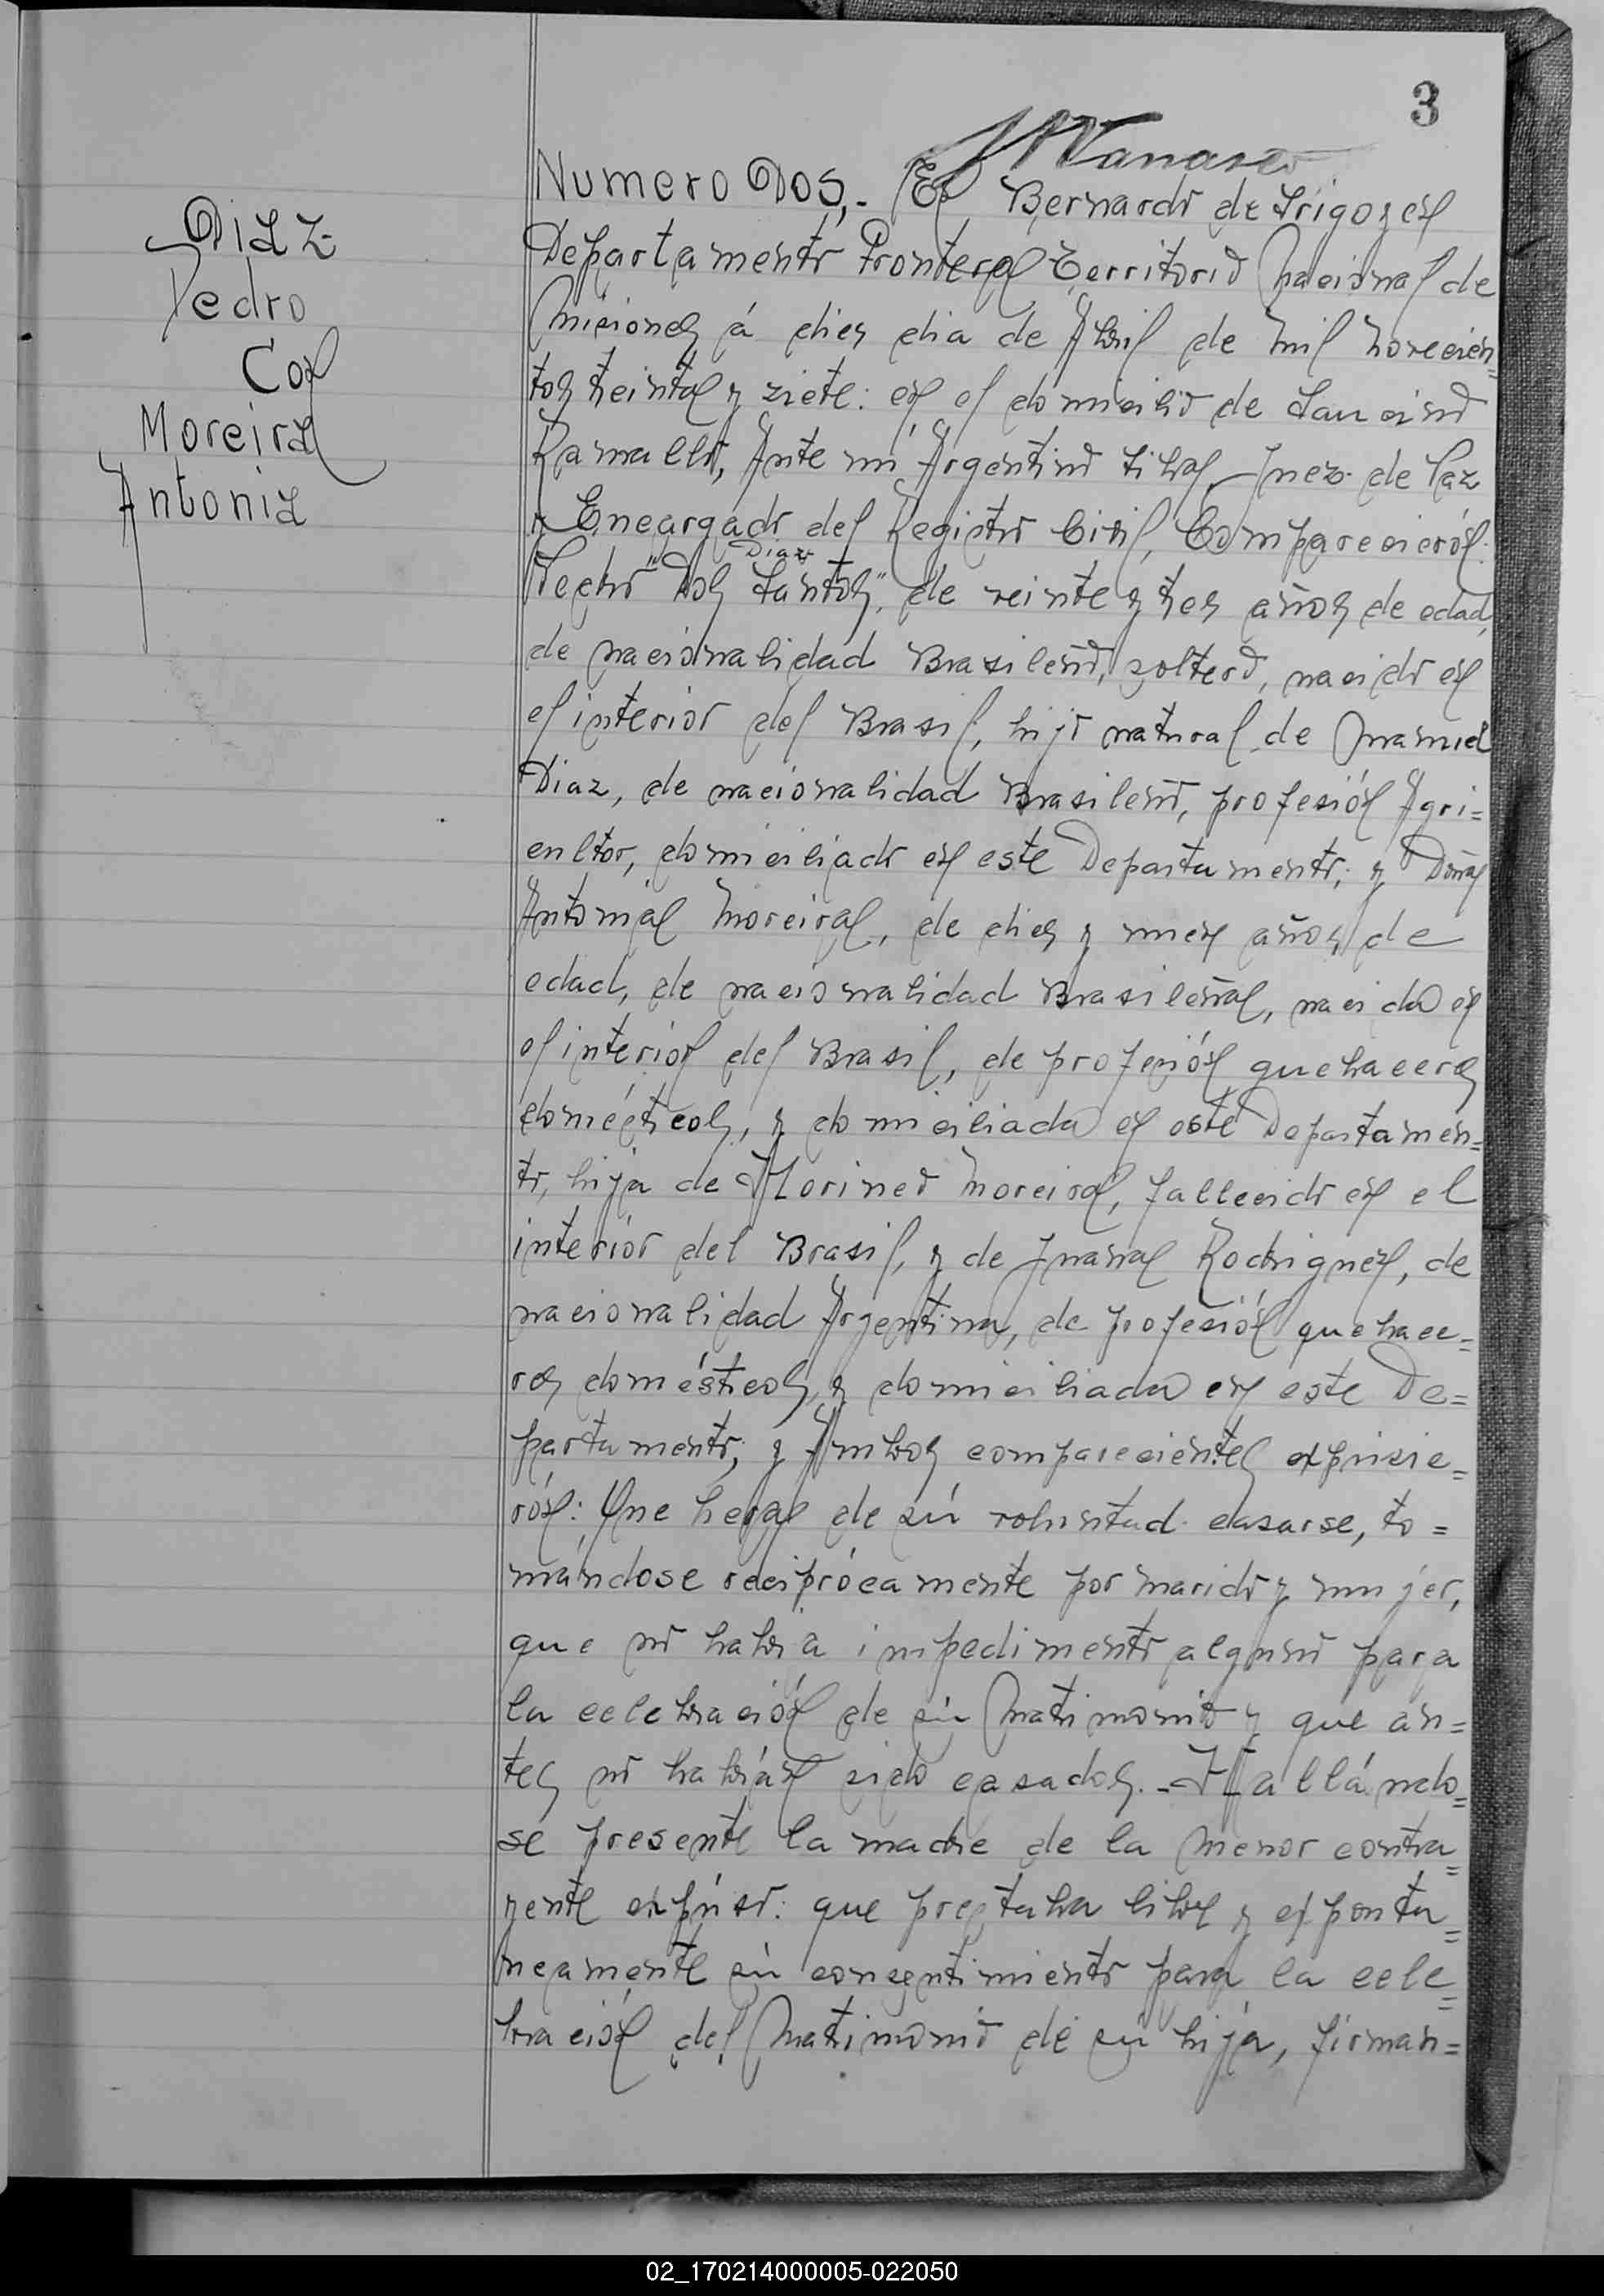 3
Diaz
Pedro
Con
Moreira
Antonia
Numero Dos,.- En Bernardo de Irigoyen
Departamento Frontera Territorio Nacional de
Misiones á dies dia de Abril de Mil Novecien=
tos treinta y siete: en el domicilio de
Ramallo, Ante mi Argentino Juez de Paz
y Encargado del Registro Civil, Comparecierón:
Diaz
Pedro "Dos Santos", de veinte y tres años de edad,
de nacionalidad Brasileño, soltero, nacido en
el interior del Brasil, hijo natural de Manuel
Diaz, de nacionalidad Brasileño, profesión Agri=
cultor, domiciliado en este Departamento; y Doña
Antonia Moreira, de dies y nuev años de
edad, de nacionalidad Brasileña, nacida en
el interiór del Brasil, de profesión quehaceres
doméstcos, y domiciliada en este Departamen=
to, hija de Moreira, fallecido en el
interiór del Brasil, y de Juana Rodriguez, de
nacionalidad Argentina, de profesión quehace=
res doméstcos, y domiciliada en este De=
partamento; y Ambos comparecientes expusie=
rón: Que hera de sú voluntad casarse, to=
mándose recipròcamente por marido y mujer,
que no habia impedimento alguno para
la celebración de sú Matrimonio y que an=
tes no habián sido casados.- Hallándo=
se presente la madre de la Menor contra=
yente expúso: que prestaba libre y exponta=
neamente sú consentimiento para la cele=
bración del Matrimonio de sú hija, firman=
02_170214000005-022050